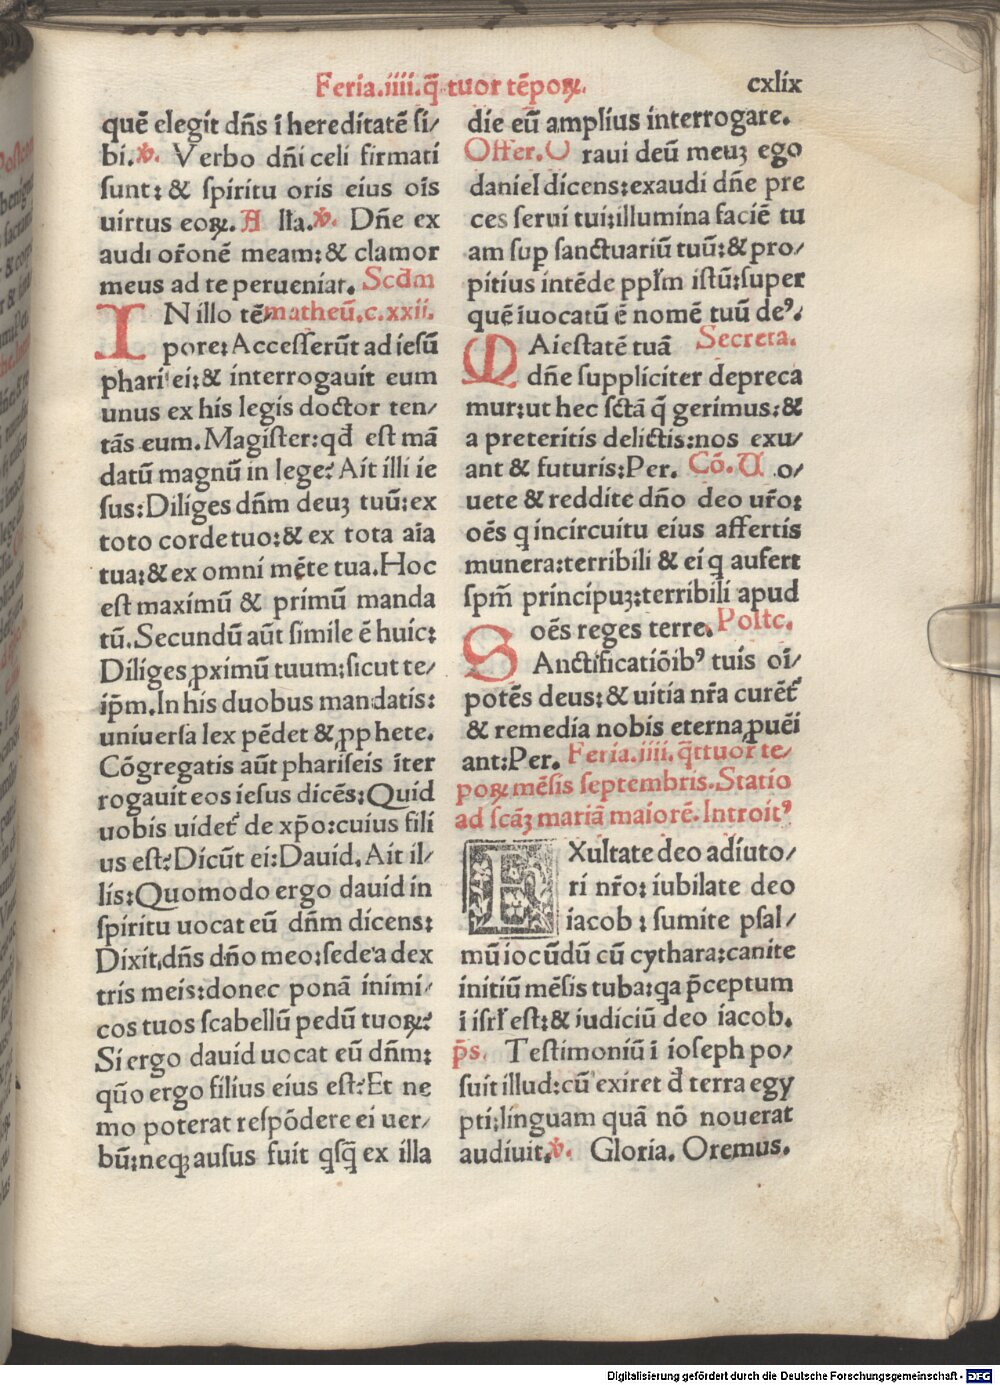 Feria.iiii.q̄ tuor tēpoꝝ.
cxlix
quē elegit dn̄s ī hereditatē si/
bi.℣. Verbo dn̄i celi firmati
sunt: & spiritu oris eius oīs
uirtus eoꝝ. A ll̄a.℣. Dn̄e ex
audi or̄onē meam: & clamor
meus ad te perueniat. Scd̄m
IN illo tē/ matheū.c.xxii.
pore: Accesserūt ad iesū
pharisei: & interrogauit eum
unus ex his legis doctor ten/
tās eum. Magister: qd̄ est mā
datū magnū in lege? Ait illi ie
sus: Diliges dn̄m deuꝫ tuū: ex
toto corde tuo: & ex tota aīa
tua: & ex omni mēte tua. Hoc
est maximū & primū manda
tū. Secundū aūt simile ē huic:
Diliges ꝓximū tuum: sicut te/
ip̄m. In his duobus mandatis:
uniuersa lex pēdet & ꝓphete.
Cōgregatis aūt phariseis īter
rogauit eos iesus dicēs: Quid
uobis uidet̄ de xp̄o: cuius fili
us est? Dicūt ei: Dauid. Ait il/
lis: Quomodo ergo dauid in
spiritu uocat eū dn̄m dicens:
Dixit dn̄s dn̄o meo: sede a dex
tris meis: donec ponā inimi/
cos tuos scabellū pedū tuoꝝ?
Si ergo dauid uocat eū dn̄m:
quō ergo filius eius est? Et ne
mo poterat respōdere ei uer/
bū: neqꝫ ausus fuit qsq̄ ex illa
die eū amplius interrogare.
Offer. O raui deū meuꝫ ego
daniel dicens: exaudi dn̄e pre
ces serui tui: illumina faciē tu
am sup sanctuariū tuū: & pro/
pitius intēde ppl̄m istū: super
quē iuocatū ē nomē tuū deꝰ.
Secreta.
MAiestatē tuā
dn̄e suppliciter depreca
mur: ut hec sc̄tā q̄ gerimus: &
a preteritis delictis: nos exu/
ant & futuris: Per. Cō. U o/
uete & reddite dn̄o deo ur̄o:
oēs q incircuitu eius affertis
munera: terribili & ei q aufert
spm̄ principuꝫ: terribili apud
oēs reges terre. Postc.
SAnctificatiōibꝰ tuis oī/
potēs deus: & uitia nr̄a curēt̄
& remedia nobis eterna ꝓuēi
ant: Per. Feria.iiii. q̄ttuor te/
poꝝ mēsis septembris. Statio
ad scāꝫ mariā maiorē. Introitꝰ
EXultate deo adiuto/
ri nr̄o: iubilate deo
iacob: sumite psal/
mū iocūdū cū cythara: canite
initiū mēsis tuba: qa p̄ceptum
ī isrl̄ est: & iudiciū deo iacob.
p̄s. Testimoniū ī ioseph po/
suit illud: cū exiret d̄ terra egy
pti: linguam quā nō nouerat
audiuit. ℣. Gloria. Oremus.
Digitalisierung gefördert durch die Deutsche Forschungsgemeinschaft - DFG